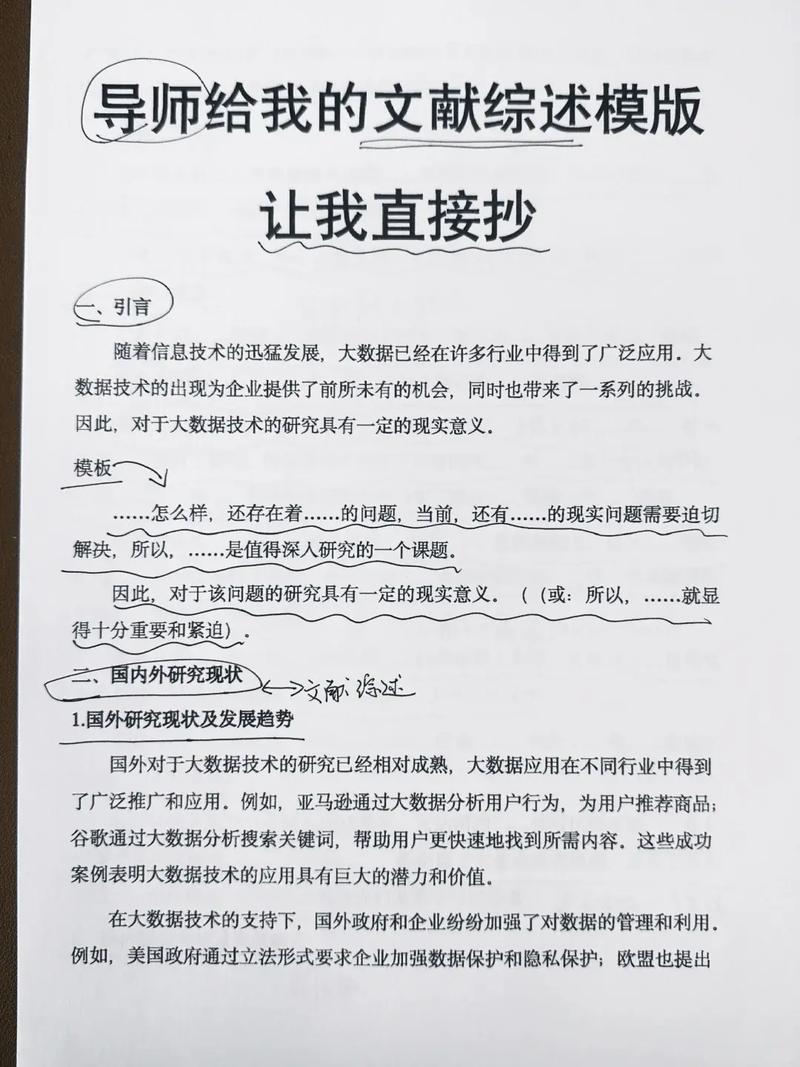 导师给我的文献综述模版
让我直接抄
一、引言
随着信息技术的迅猛发展，大数据已经在许多行业中得到了广泛应用。大
数据技术的出现为企业提供了前所未有的机会，同时也带来了一系列的挑战。
因此，对于大数据技术的研究具有一定的现实意义。
模板
……怎么样，还存在着……的问题，当前，还有……的现实问题需要迫切
解决，所以，……是值得深入研究的一个课题。
因此，对于该问题的研究具有一定的现实意义。（（或：所以，……就显
得十分重要和紧迫）。
二、国内外研究现状 文献综述
1.国外研究现状及发展趋势
国外对于大数据技术的研究已经相对成熟，大数据应用在不同行业中得到
了广泛推广和应用。例如，亚马逊通过大数据分析用户行为，为用户推荐商品；
谷歌通过大数据分析搜索关键词，帮助用户更快速地找到所需内容。这些成功
案例表明大数据技术的应用具有巨大的潜力和价值。
在大数据技术的支持下，国外政府和企业纷纷加强了对数据的管理和利用。
例如，美国政府通过立法形式要求企业加强数据保护和隐私保护；欧盟也提出